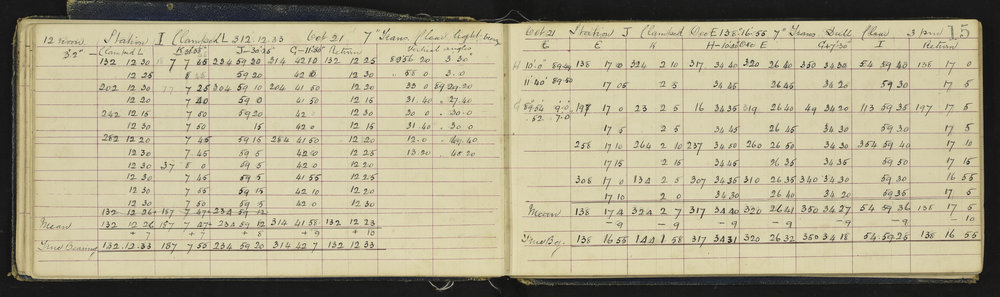 12 noon Station I Clamped L 312.12.33 Oct 21 7" Trans. Clear light
Clamped L K J G Return Vertical angles
132 12 30 7 7 45 234 59 20 314 42 10 132 12 25 89 56 20 3.30
12 25 8 45 59 20 42 10 12 20 58 0 3.0
202 12 30 7 25 204 59 10 204 41 50 12 20 33 0 89 29.20
12 20 7 40 59 0 41 50 12 15 31.40 27.40
242 12 15 7 50 59 20 42 0 12 30 30 0 30.0
12 30 7 50 15 42 0 12 15 31.40 30.0
282 12 20 7 45 59 15 284 41 50 12 20 12.0 49.40
12 30 7 45 59 5 42 0 12 25 13.20 48.20
12 30 37 8 0 59 5 42 0 12 20
12 30 7 45 59 5 41 55 12 25
12 30 7 55 59 15 42 10 12 20
12 30 7 50 59 5 42 0 12 20
132 12 26 187 7 47 234 59 12
Mean 132 12 26 187 7 47 234 59 12 314 41 58 132 12 23
+ 7 + 7 + 8 + 9 + 10
True Bearing 132.12.33 187 7 55 234 59 20 314 42 7 132 12 33
Oct 21 Station J Clamped E 138.16.55 7" Trans Dull Clear 3 pm 15
E E K H E G I Return
H 10'.0" 138 17 0 324 2 10 317 34.40 320 26 40 350 34.30 54 59 40 138 17 0
11'.40" 89.50 17 05 2 5 34 45 26 45 34 20 59 30 17 5
G 89.54 9.0 197 17 0 23 2 5 16 34.35 319 26.40 49 34 20 113 59 35 197 17 5
.52 7.0
17 5 2 5 34.45 26 45 34.30 59 30 17 5
258 17 10 264 2 10 257 34.50 260 26 50 34.30 354 59 40 17 10
17 15 2 15 34.45 26 35 34.35 59 50 17 15
308 17 0 134 2 5 307 34.35 310 26 35 340 34.30 59 30 16 55
17 10 2 0 34.30 26 40 34 20 59 35 17 5
Mean 138 17 4 324 2 7 317 34 40 320 26 41 350 34 27 54 59 36 138 17 5
- 9 - 9 - 9 - 9 - 9 - 10
True Bg. 138 16 55 144 1 58 317 34 31 320 26 32 350 34 18 54.59 25 138 16 55